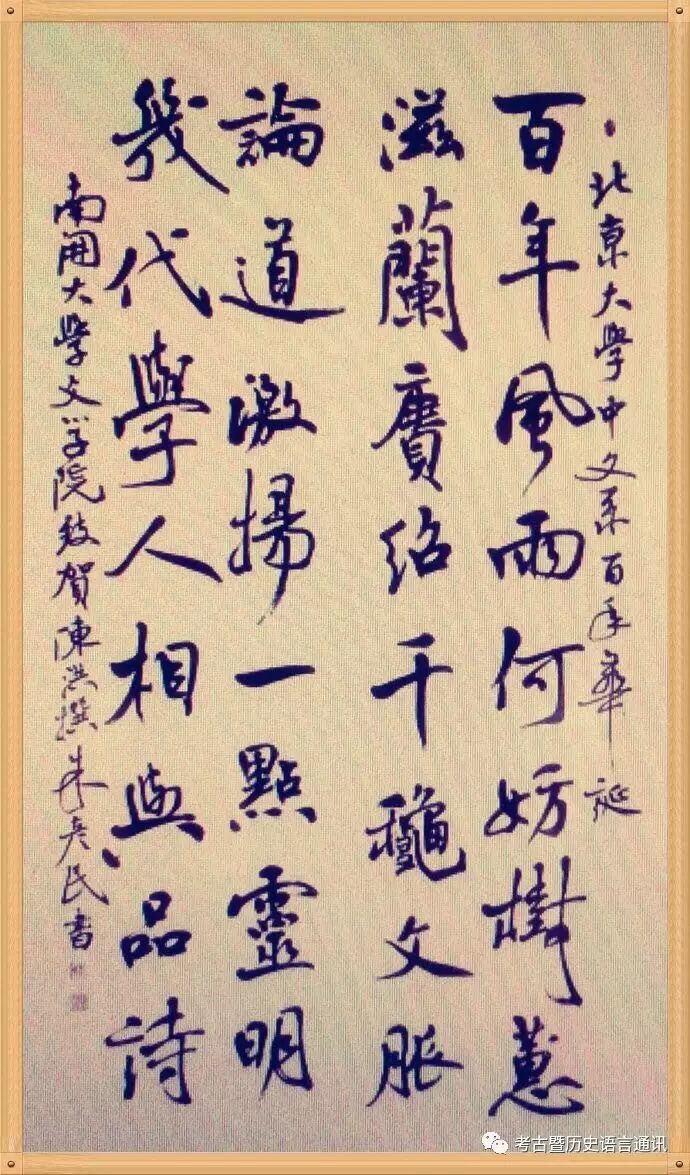 北京大學中文系百年華誕
百年風雨何妨樹蕙
滋蘭賡紹千穐文脈
論道激揚一點靈明
幾代學人相與品詩
南開大學文学院致賀陳洪撰朱彦民書
考古暨历史语言通讯